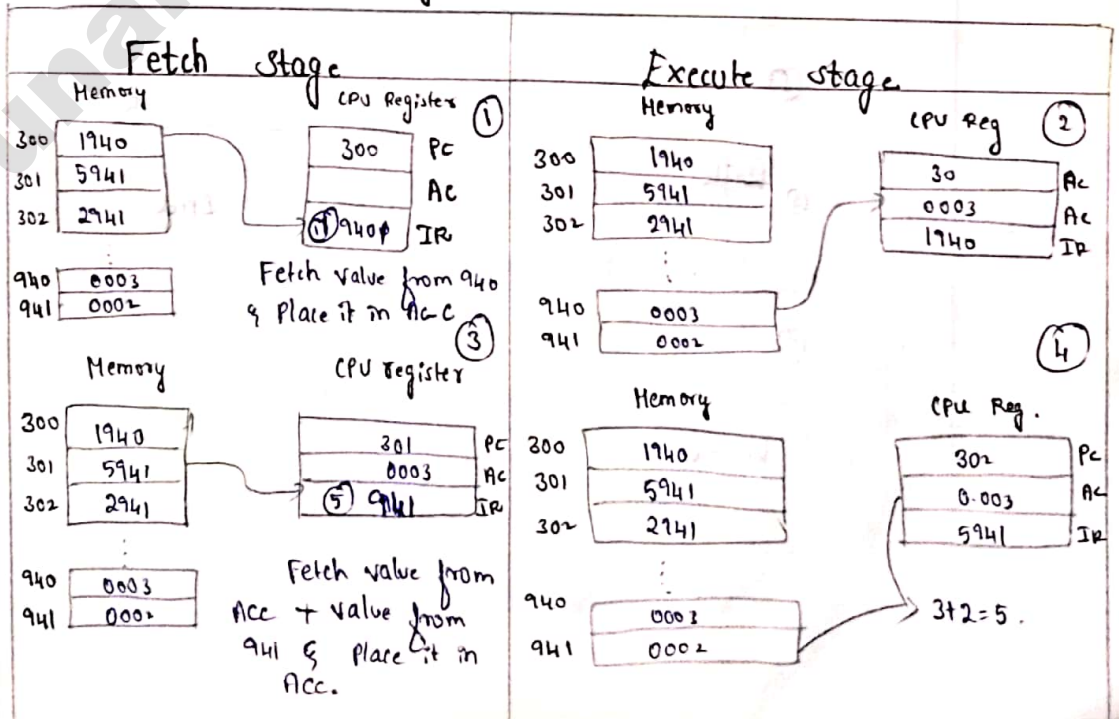 Fetch Stage
Memory
CPU Register
①
300 1940
301 5941
302 2941
940 0003
941 0002
300 PC
AC
① 940 IR
Fetch value from 940
& Place it in Acc
③
Memory
CPU register
300 1940
301 5941
302 2941
940 0003
941 0002
301 PC
0003 AC
⑤ 941 IR
Fetch value from
Acc + value from
941 & place it in
Acc.
Execute stage
Memory
CPU Reg
②
300 1940
301 5941
302 2941
940 0003
941 0002
30 Ac
0003 Ac
1940 IR
④
Memory
CPU Reg.
300 1940
301 5941
302 2941
940 0003
941 0002
302 PC
0.003 AC
5941 IR
3+2=5.